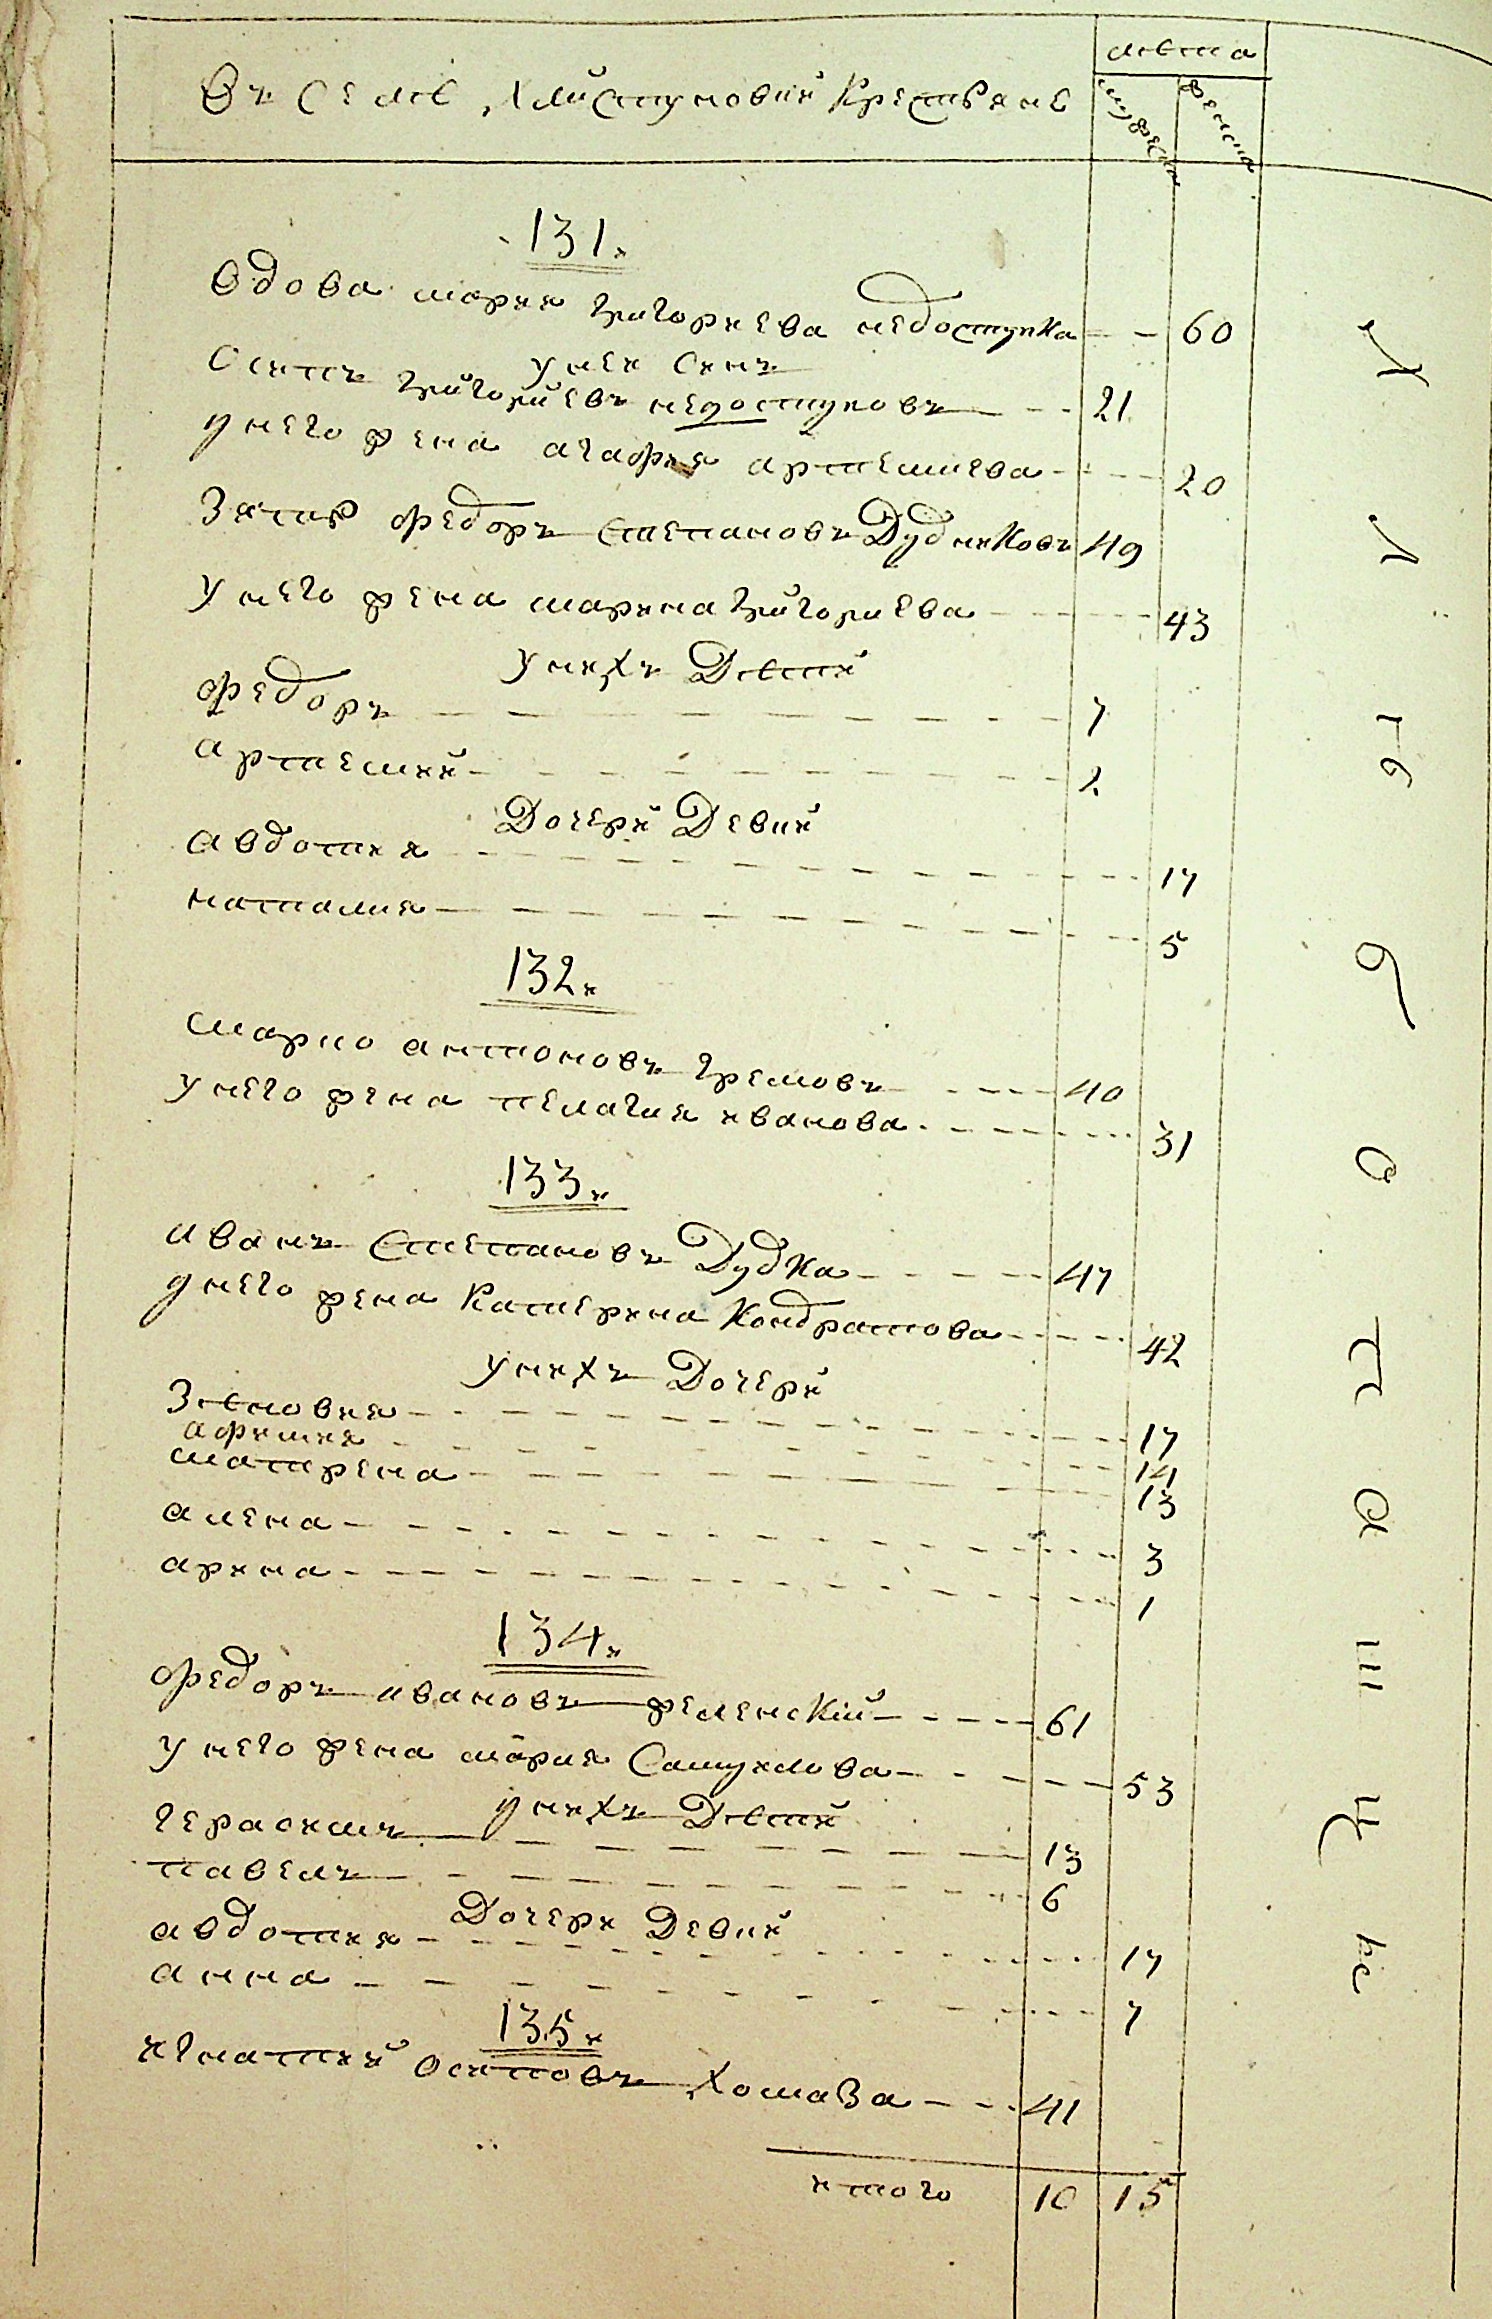 Въ селѣ Хлистуновки крестьянѣ
лѣта
мужеска
женска
131.
вдова мария григориева недоступка 60
у нея синъ
осипъ григориевъ недоступовъ 21
у него жена агафия артемиева 20
зять федоръ степановъ Дудниковъ 49
у него жена марина григориева 43
у нихъ Дѣти
федоръ 7
артемий 2
Дочери Девки
авдотия 17
наталия 5
132.
марко антоновъ гремовъ 40
у него жена пелагия иванова 31
133.
иванъ степановъ Дудка 47
у него жена Катерина Кондратова 42
у нихъ Дочери
зѣновия 17
афимия 14
матрена 13
алена 3
арина 1
134.
федоръ ивановъ желенский 61
у него жена мария Самуилова 53
у нихъ Дѣти
герасимъ 13
павелъ 6
Дочери Девки
авдотия 17
анна 7
135.
игнатий осиповъ Хомаза 41
итого 10 15